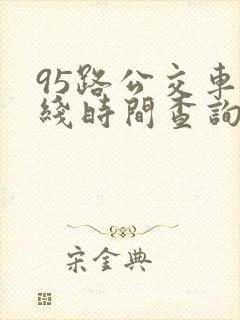 95路公交車
綫時間查詢
宋金典